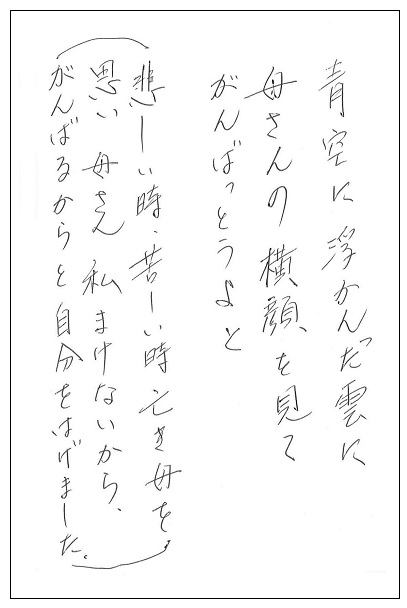 青空に浮かんだ雲に
母さんの横顔を見て
がんばっとうよと
(悲しい時、苦しい時亡き母を
思い 母さん 私まけないから、
がんばるからと自分をはげました。)